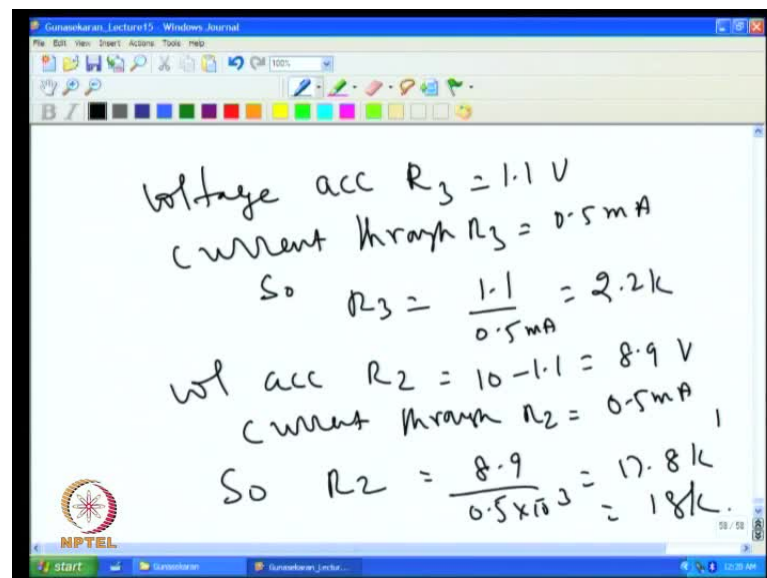 Gunasekaran_Lecture15 - Windows Journal
File Edit View Insert Actions Tools Help
100%
B I
voltage acc R3 = 1.1 V
current through R3 = 0.5 mA
So R3 = 1.1 / 0.5 mA = 2.2k
vol acc R2 = 10 - 1.1 = 8.9 V
current through R2 = 0.5mA
So R2 = 8.9 / 0.5 x 10^-3 = 17.8k
= 18k.
NPTEL
58 / 58
start Gunasekaran Gunasekaran_Lectur... 12:20 AM